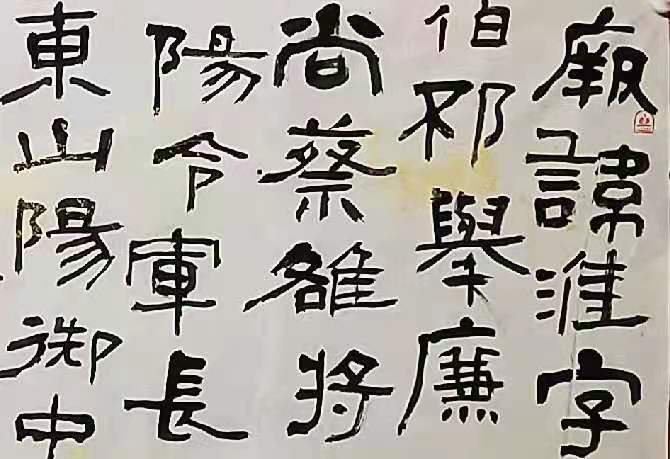 厥諱淮字
伯邳舉廉
尚蔡雒將
陽令軍長
東山陽御中